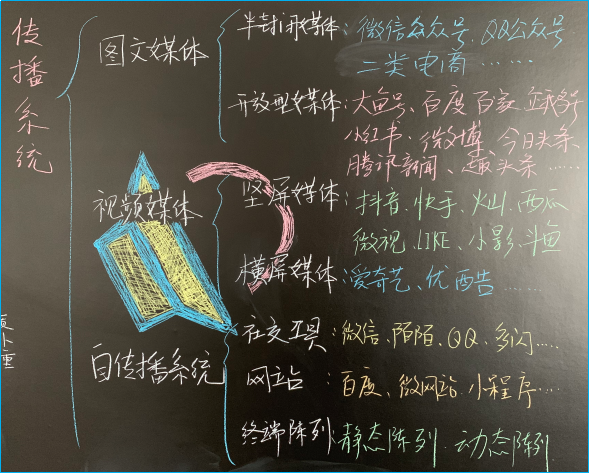 传播系统
图文媒体
半封闭媒体：微信公众号、QQ公众号
二类电商……
开放型媒体：大鱼号、百度百家、企鹅号
小红书、微博、今日头条、
腾讯新闻、趣头条……
视频媒体
竖屏媒体：抖音、快手、火山、西瓜
微视、LIKE、小影、斗鱼
横屏媒体：爱奇艺、优酷……
自传播系统
社交工具：微信、陌陌、QQ、多闪……
网站：百度、微网站、小程序……
终端阵列：静态阵列、动态阵列